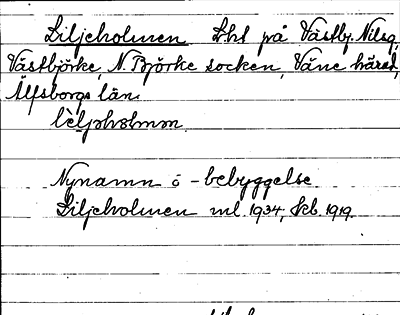 Liljeholmen Lht på Västbj. Nilsg,
Västbjörke, N. Björke socken, Väne härad,
Älfsborgs län.
Nynamn å -bebyggelse.
Liljeholmen ml. 1934, Skb. 1919.